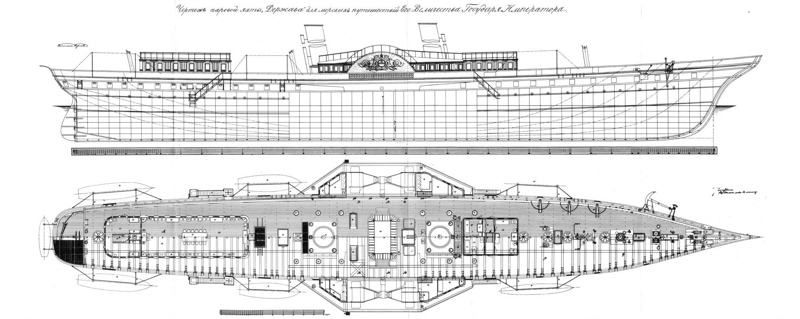 Чертежъ паровой яхты „Держава" для морскихъ путешествій Его Величества Государя Императора.